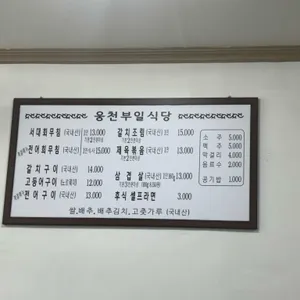 웅천부일식당
서대회무침 (국내산) 13.000
전어회무침 (국내산) 15.000
갈치구이 (국내산) 14.000
고등어구이 12.000
전어구이 (국내산) 13.000
갈치조림 (국내산) 15.000
제육볶음 (국내산) 13.000
삼겹살 (국내산) 13.000
후식 셀프라면 3.000
소주 5.000
맥주 5.000
막걸리 4.000
음료수 2.000
공기밥 1.000
쌀,배추, 배추김치, 고춧가루 (국내산)